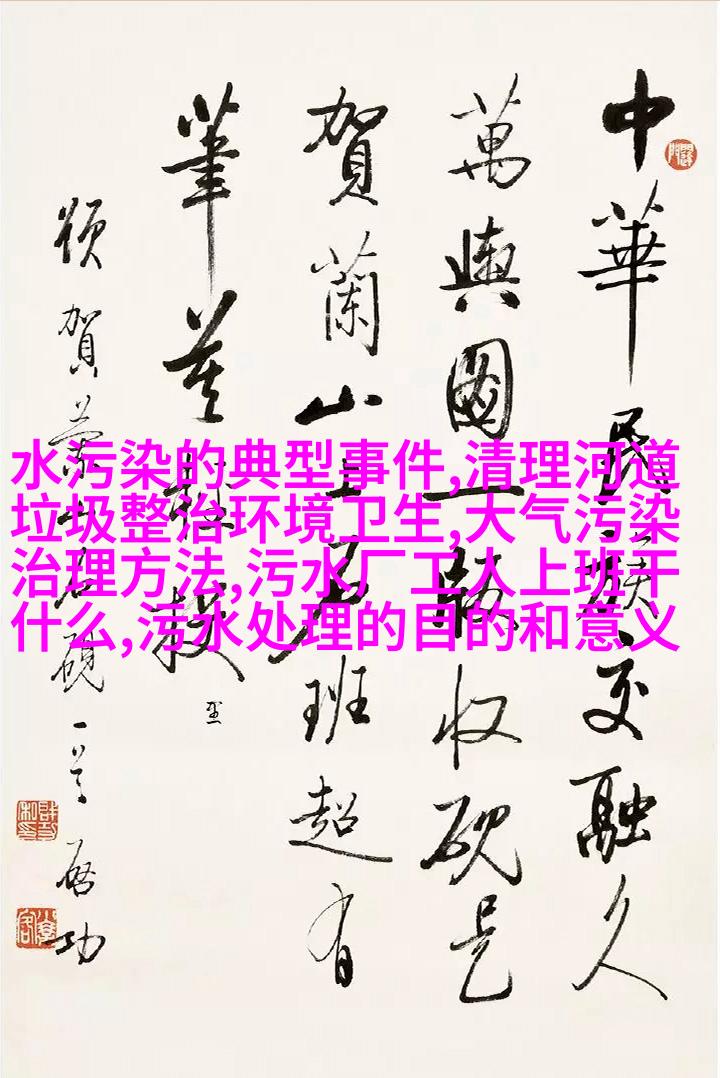 中華民族交融久
萬輿圖一版收硯是
賀蘭山上石班超有
筆莫輕投 里
頌賀蘭山石硯一首 啟功
水污染的典型事件,清理河道
垃圾整治环境卫生,大气污染
治理方法,污水厂工人上班干
什么,污水处理的目的和意义